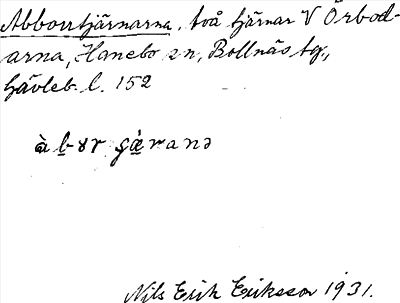 Abborrtjärnarna, två tjärnar V Örbod-
arna, Hanebo sn, Bollnäs tg,
Gävleb. l. 152
àb̲ɤr
Nils Erik Eriksson 1931.